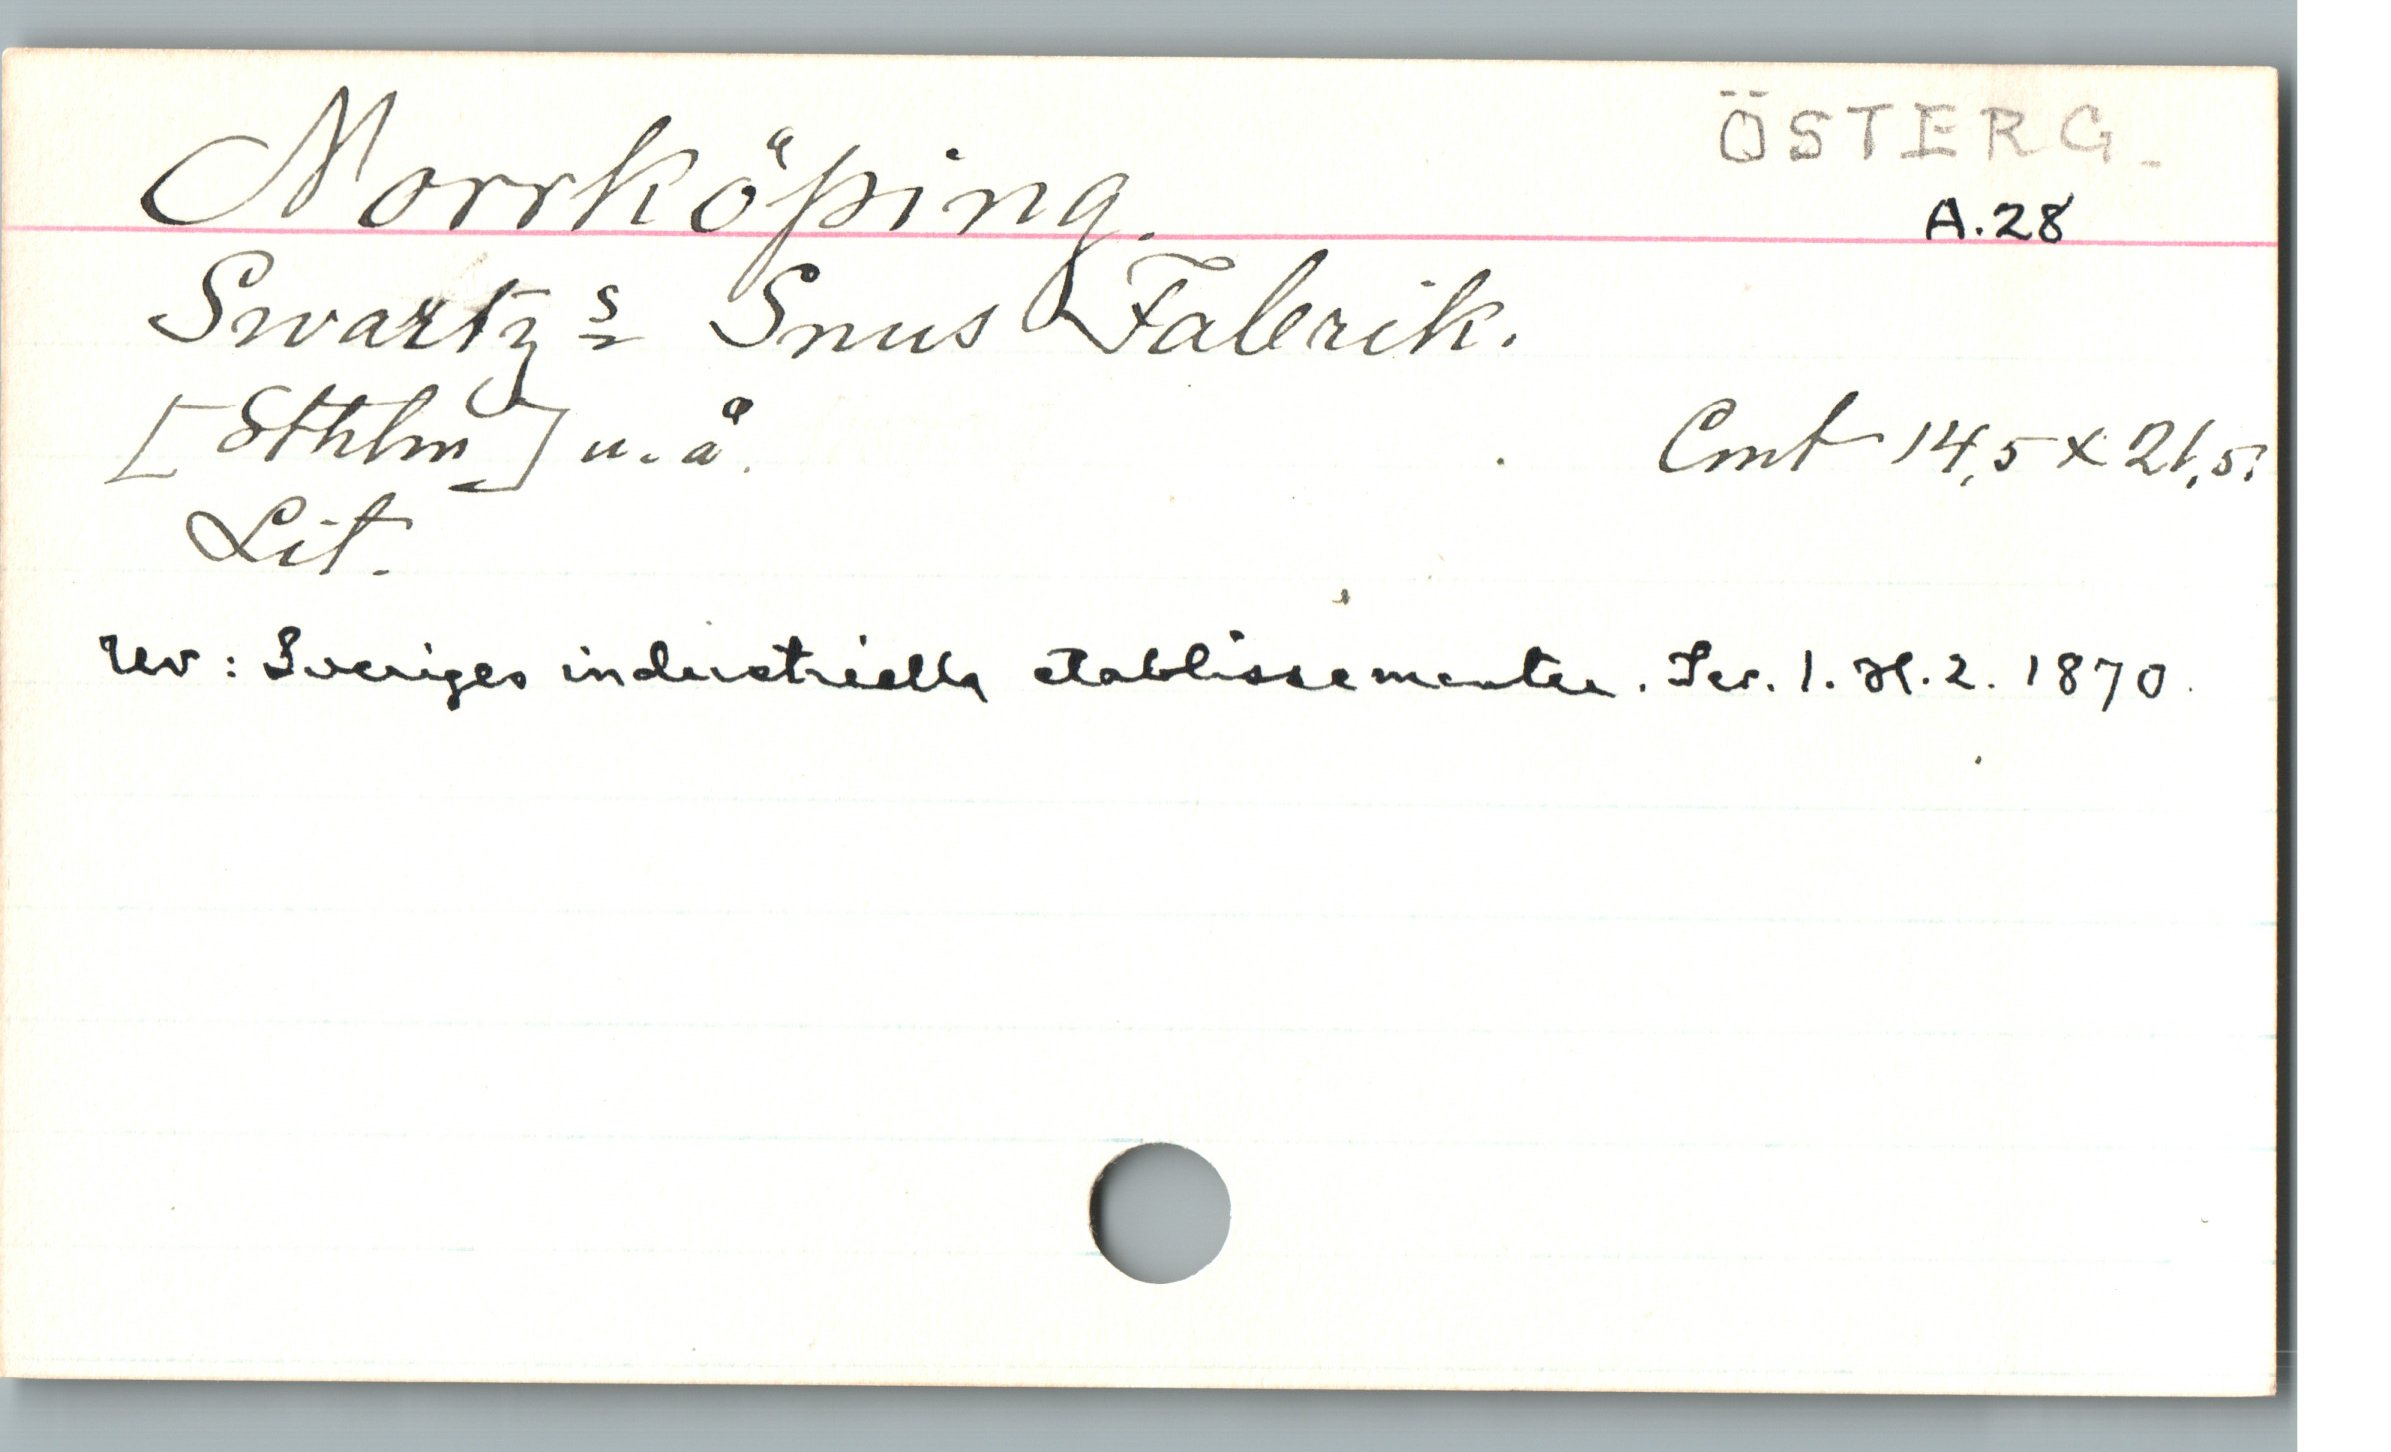 Norrköping.
ÖSTERG.
A.28
Swartzs Snus Fabrik.
[Sthlm] u.å.
Cmt 14,5 x 21,5.
Lit.
Ur: Sveriges industriella etablissementer. Ser. 1. H. 2. 1870.